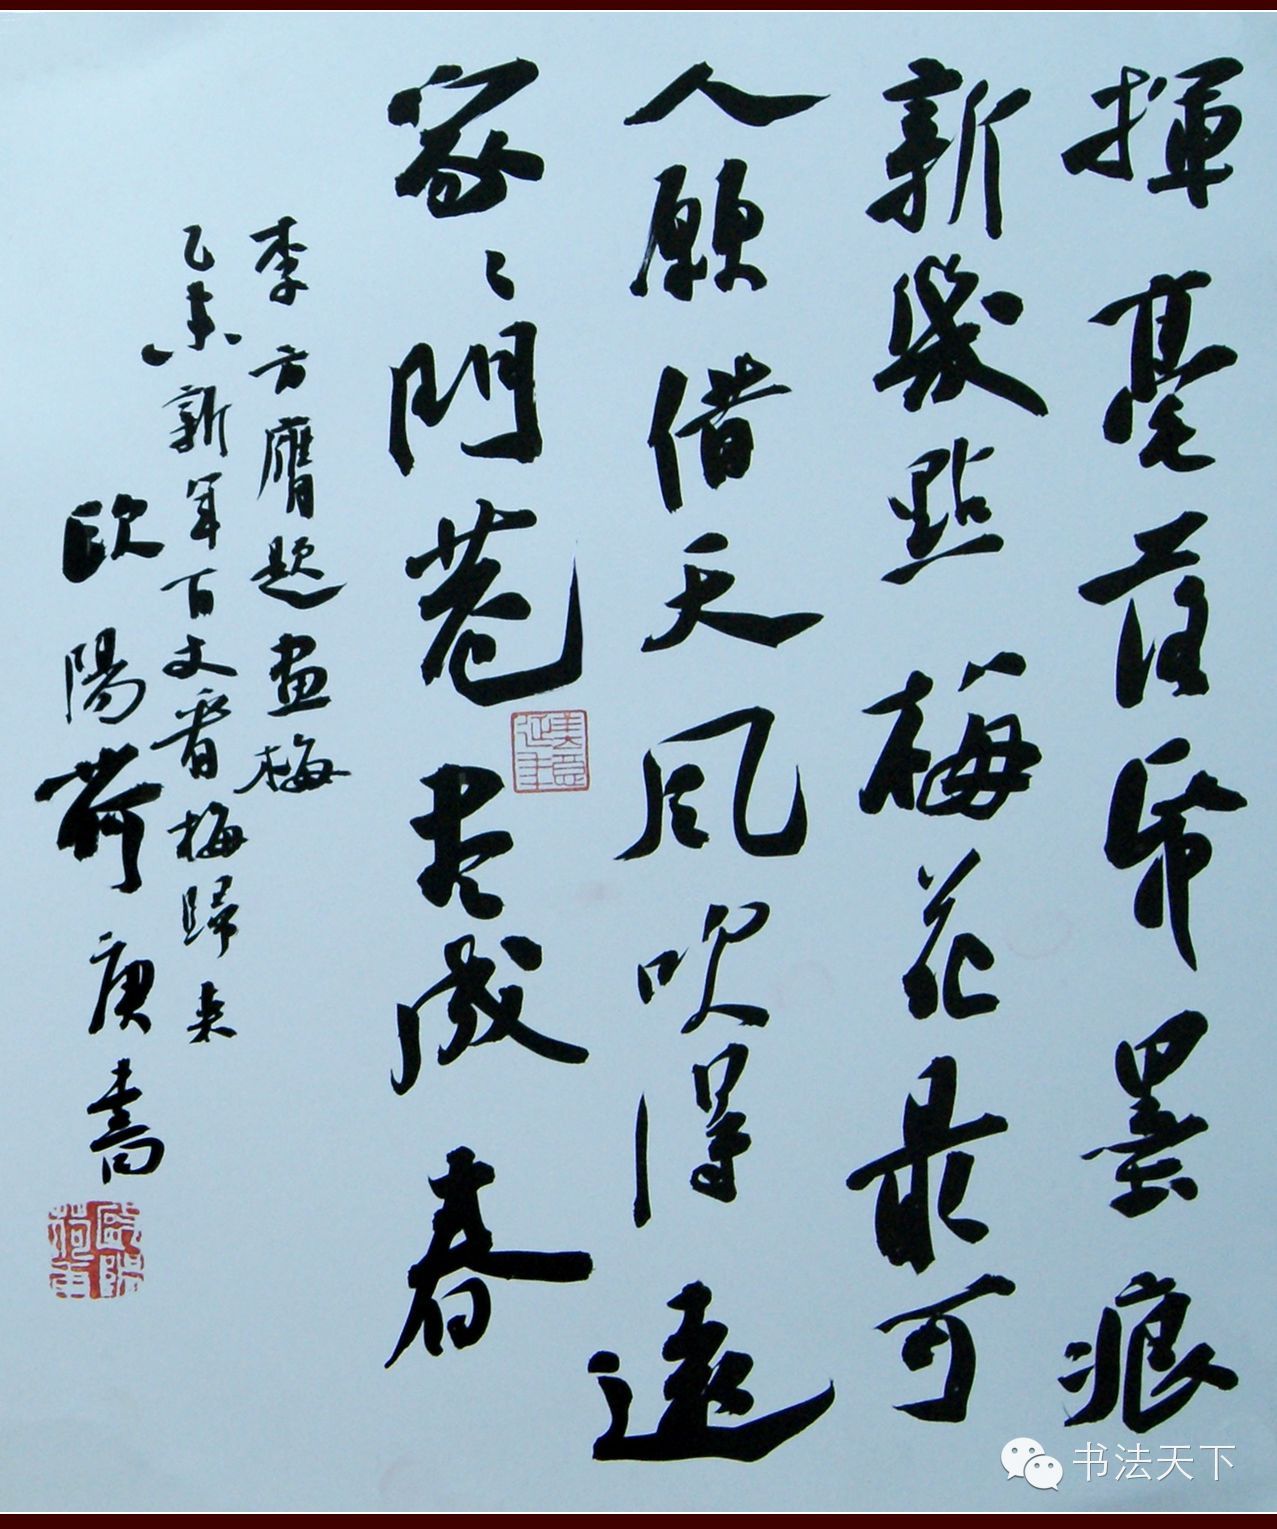 揮毫落紙墨痕
新幾點梅花最可
人願借天風吹得遠
家〻門巷盡成春
李方膺題畫梅
乙未新年百文看梅歸来
歐陽荷庚書
書法天下